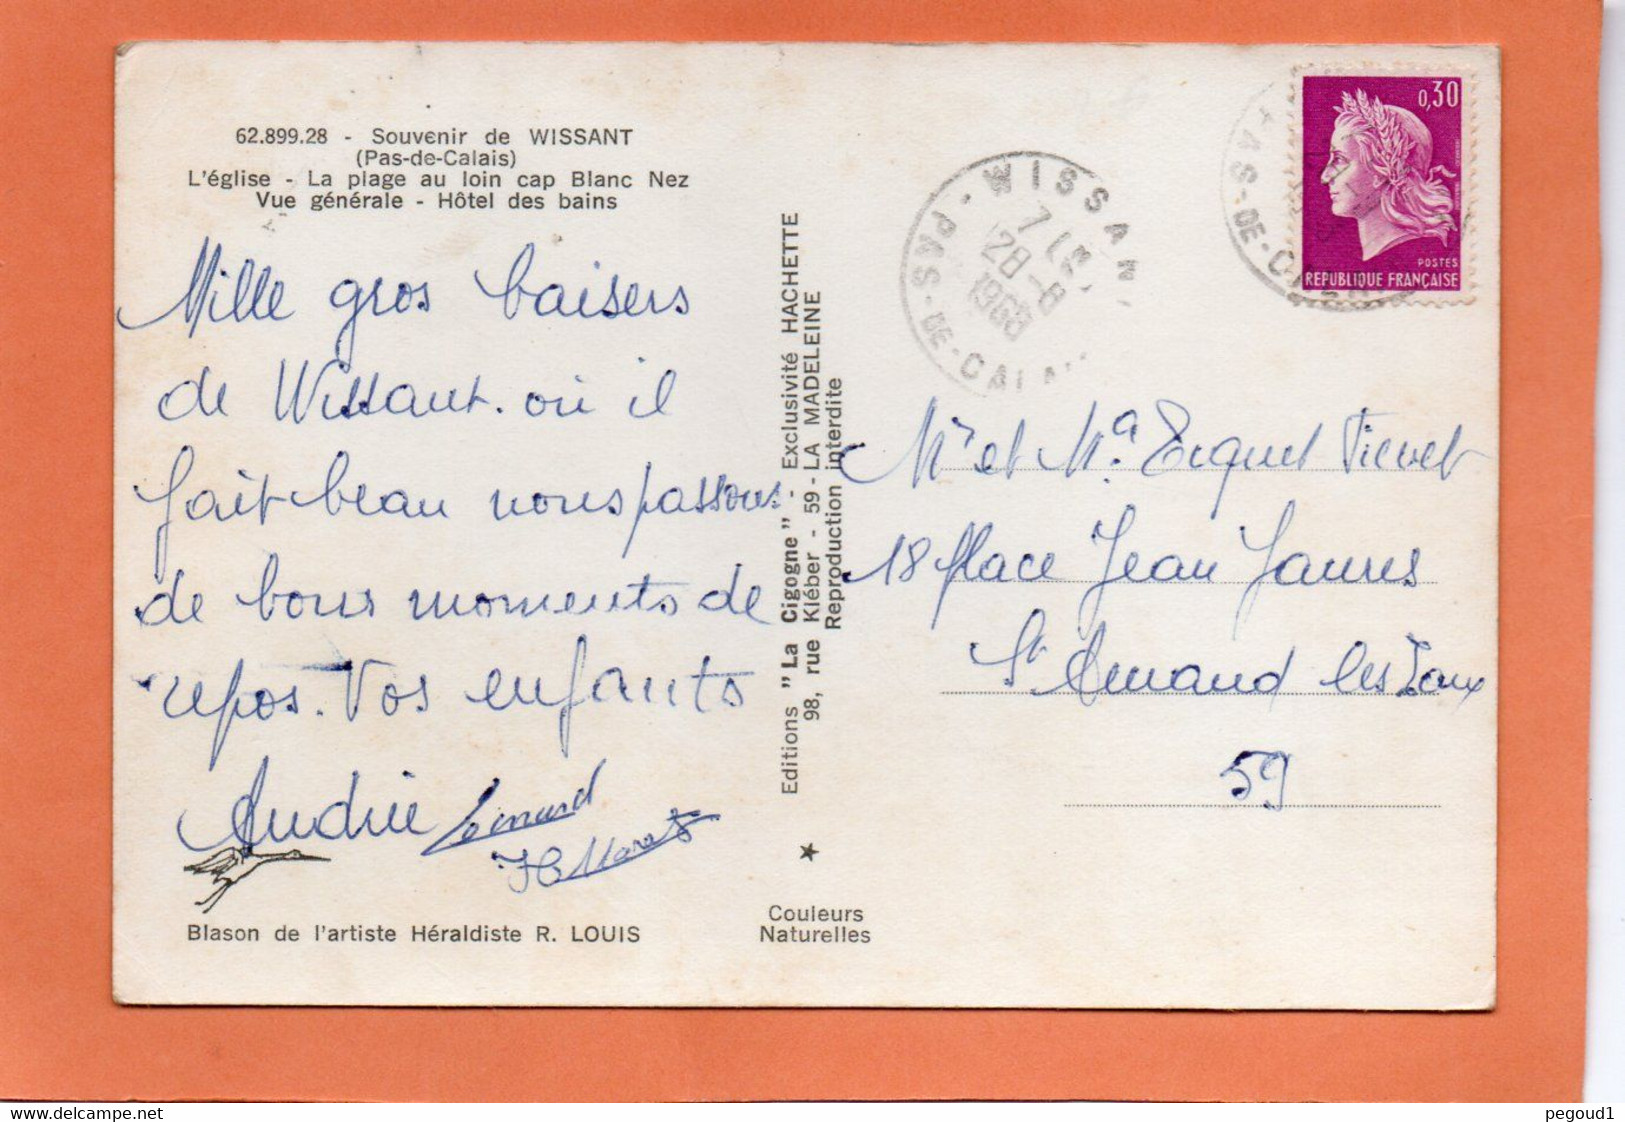 62.899.28 - Souvenir de WISSANT
(Pas-de-Calais)
L'église - La plage au loin cap Blanc Nez
Vue générale - Hôtel des bains
Mille gros baisers
de Wissant. où il
fait beau nous passons
de bons moments de
repos. Vos enfants
Andrée
Blason de l'artiste Héraldiste R. LOUIS
Editions "La Cigogne" - Exclusivité HACHETTE
98, rue Kléber - 59 - LA MADELEINE
Reproduction interdite
Couleurs
Naturelles
WISSAN
28-8
1968
PAS-DE-CALA
0,30
POSTES
REPUBLIQUE FRANÇAISE
AS-DE-C
Mr et Ma
18 place Jean Jaures
St Amand les Eaux
59
pegoud1